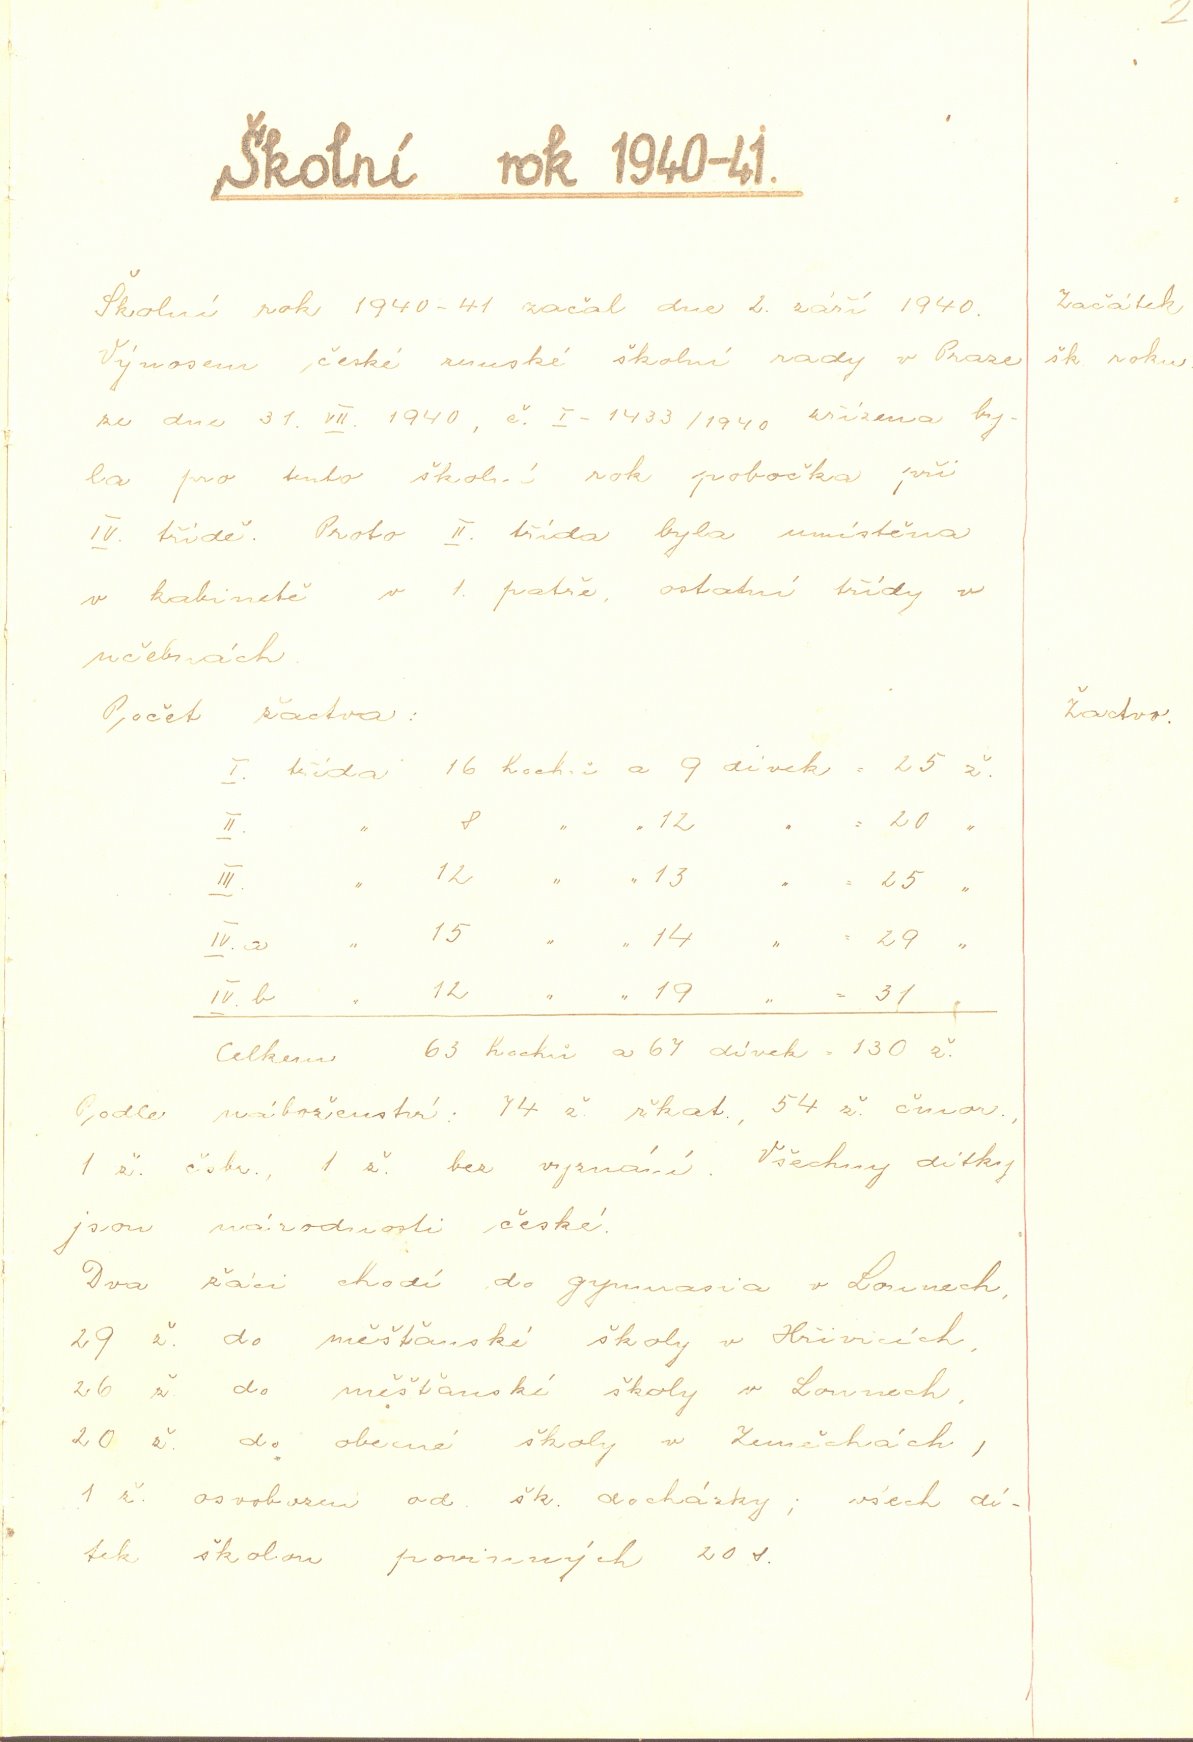 2
Školní rok 1940-41.
Školní rok 1940-41 začal dne 2. září 1940.
Začátek
Výnosem české zemské školní rady v Praze
šk. roku.
ze dne 31. VII. 1940, č. I-1433/1940 zřízena by-
la pro tento školní rok pobočka při
IV. třídě. Proto II. třída byla umístěna
v kabinetě v 1. patře, ostatní třídy v
učebnách.
Počet žactva:
Žactvo.
I. třída 16 hochů a 9 dívek = 25 ž.
II. " 8 " " 12 " = 20 "
III. " 12 " " 13 " = 25 "
IV. a " 15 " " 14 " = 29 "
IV. b " 12 " " 19 " = 31 "
Celkem 63 hochů a 67 dívek = 130 ž.
Podle náboženství: 74 ž. řkat., 54 ž. čmor.,
1 ž. čsbr., 1 ž. bez vyznání. Všechny dítky
jsou národnosti české.
Dva žáci chodí do gymnasia v Lounech,
29 ž. do měšťanské školy v Hřivicích,
26 ž. do měšťanské školy v Lounech,
20 ž. do obecné školy v Zeměchách,
1 ž. osvobozen od šk. docházky; všech dí-
tek školou povinných 208.